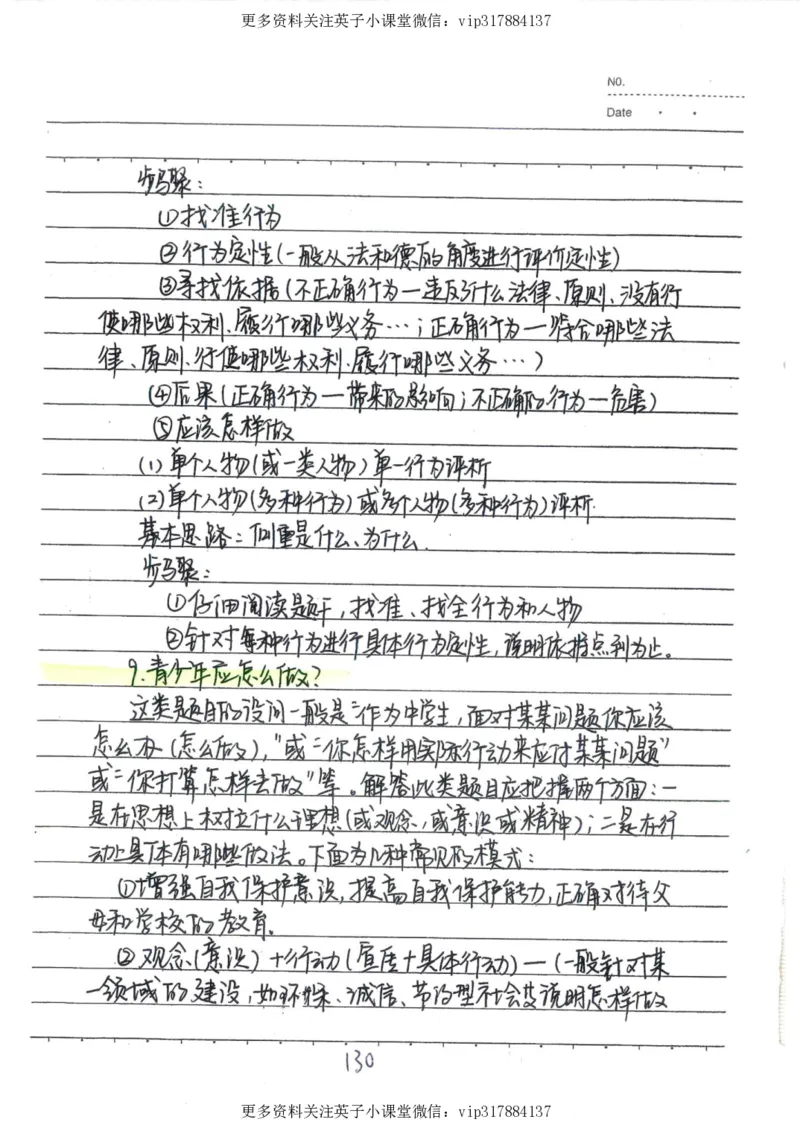 更多资料关注英子小课堂微信：vip317884137
NO.
Date
步骤：
①找准行为
②行为定性(一般从法和德的角度进行评价定性)
③寻找依据(不正确行为一违反了什么法律、原则、没有行
使哪些权利、履行哪些义务…；正确行为一符合哪些法
律、原则、行使哪些权利、履行哪些义务…)
④后果(正确行为一带来的影响；不正确的行为一危害)
⑤应该怎样做
(1)单个人物(或一类人物)单一行为评析
(2)单个人物(多种行为)或多个人物(多种行为)评析.
基本思路：侧重是什么、为什么.
步骤：
①仔细阅读题干，找准、找全行为和人物
②针对每种行为进行具体行为定性，说明依据点到为止。
9.青少年应怎么做？
这类题目的设问一般是“作为中学生，面对某某问题你应该
怎么办(怎么做)，”或“你怎样用实际行动来应对某某问题”
或“你打算怎样去做”等。解答此类题目应把握两个方面：一
是在思想上树立什么理想(或观念，或意识或精神)；二是在行
动上具体有哪些做法。下面为几种常见的模式：
①增强自我保护意识，提高自我保护能力，正确对待父
母和学校的教育.
②观念(意识)+行动(宣传+具体行动)—(一般针对某
一领域的建设，如环保、诚信、节约型社会等说明怎样做
130
更多资料关注英子小课堂微信：vip317884137